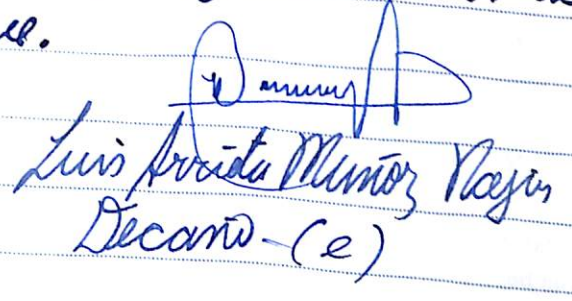 Luis Arrieta Muñoz Rojas
Decano - (e)